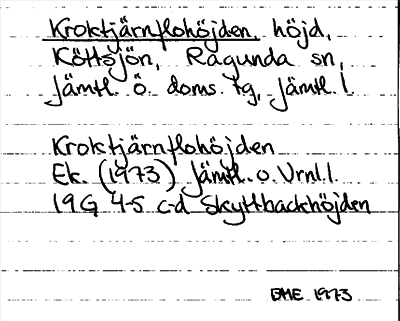 Kroktjärnflohöjden, höjd,
Köttsjön, Ragunda sn,
Jämtl. ö. doms. tg, Jämtl. l.
Kroktjärnflohöjden
Ek. (1973) Jämtl. o. Vrnl. l.
19G 4-5 c-d Skyttbackhöjden
EME 1973